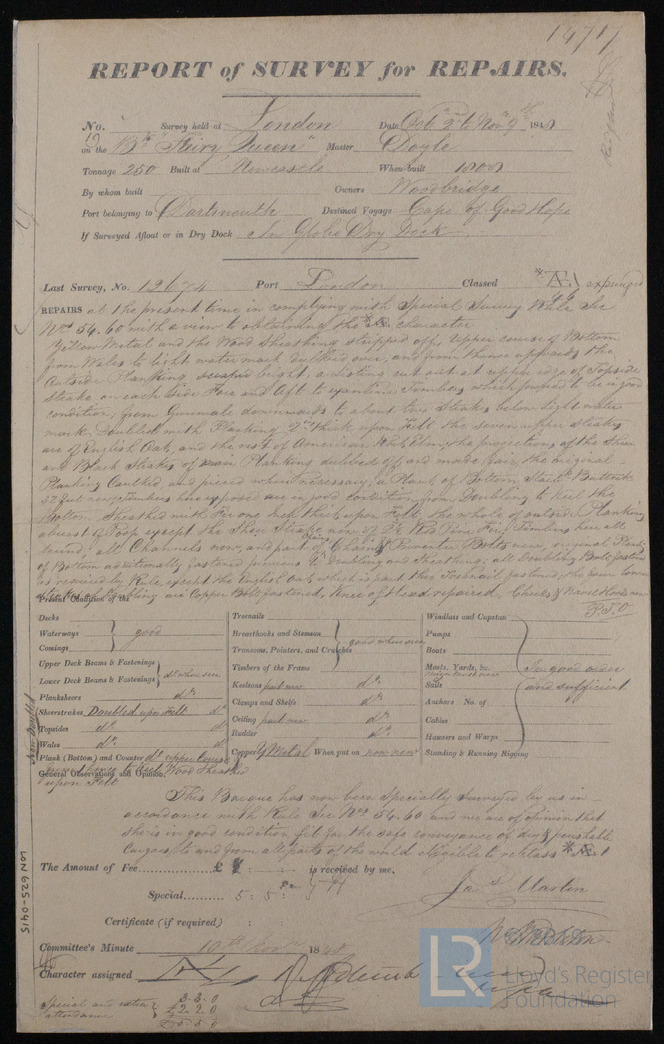 REPORT of SURVEY for REPAIRS.
No. Survey held at London Date Oct 2nd to Nov 9th 1848
on the Bk "Fairy Queen" Master Doyle
Tonnage 250 Built at Newcastle When built
By whom built Owners Woodbridge
Port belonging to Dartmouth Destined Voyage Cape of Good Hope
If Surveyed Afloat or in Dry Dock In Globe Dry Dock
Last Survey, No. 12674 Port London Classed *Æ expunged
REPAIRS at the present time in complying with Special Survey Rule Sec
Nos 54.60 with a view to obtaining the *Æ character
Yellow Metal and the Wood Sheathing stripped off, Upper course of Bottom
from Wales to light water mark dubbed over, and from thence upwards the
Outside Planking scraped bright, a listing cut out at upper edge of Topside
Strake on each side Fore and Aft to examine Timbers, which proved to be in good
condition, from Gunwale downwards to about two Strakes below light water
mark Doubled with Planking 2 In thick upon Felt the seven upper strakes
are of English Oak, and the rest of American Rock Elm, the projections of the Sheer
and Black Strakes of main Planking dubbed off and made fair, the original
Planking Caulked and pieced where necessary, a Plank of Bottom, Starbd Buttock
32 feet new, Timbers here exposed are in good condition, from Doubling to Keel the
Bottom Sheathed with Fir one Inch thick upon Felt, the whole of outside Planking
abreast of Poop except the Sheer Strake new of Red Pine Fir, Timbers here all
sound, all Channels new, and part of Chains & Preventer Bolts new, original Plank
of Bottom additionally fastened previous to Doubling and Sheathing, all Doubling Bolt fastened
as required by Rule except the English Oak, which is part thro Treenail fastened, the
strakes of Doubling are Copper Bolt fastened, Knee of Head repaired, Cheeks & Navel Hoods new
P.T.O
Present Condition of the
Decks
Waterways good
Comings
Upper Deck Beams & Fastenings
Lower Deck Beams & Fastenings do where seen
Planksheers do
Sheerstrakes Doubled upon Felt do
Topsides do do
Wales do do
Plank (Bottom) and Counter do upper course
Treenails
Breasthooks and Stemson good where seen
Transoms, Pointers, and Crutches
Timbers of the Frame
Keelsons part new do
Clamps and Shelfs do
Ceiling part new do
Rudder do
Copper Y Metal When put on now new
Windlass and Capstan
Pumps
Boats
Masts, Yards, &c. In good order
Sails and sufficient
Anchors No. of
Cables
Hawsers and Warps
Standing & Running Rigging
Now Doubled
General Observations and Opinion,
Wood Sheathed
upon Felt
This Barque has now been Specially Surveyed by us in
accordance with Rule Sec Nos 54.60 and we are of opinion that
she is in good condition fit for the safe conveyance of dry & perishable
Cargoes, to and from all parts of the world eligible to reclass *Æ 1
The Amount of Fee £ is received by me,
Special 5 : 5 :
Jas Martin
Certificate (if required) :
Committee's Minute 10th Novr 1848
Character assigned
Special and extra 3.3.0
attendance £2.2.0
£5.5.0
LON 625-0415
LR
Lloyd's Register
Foundation